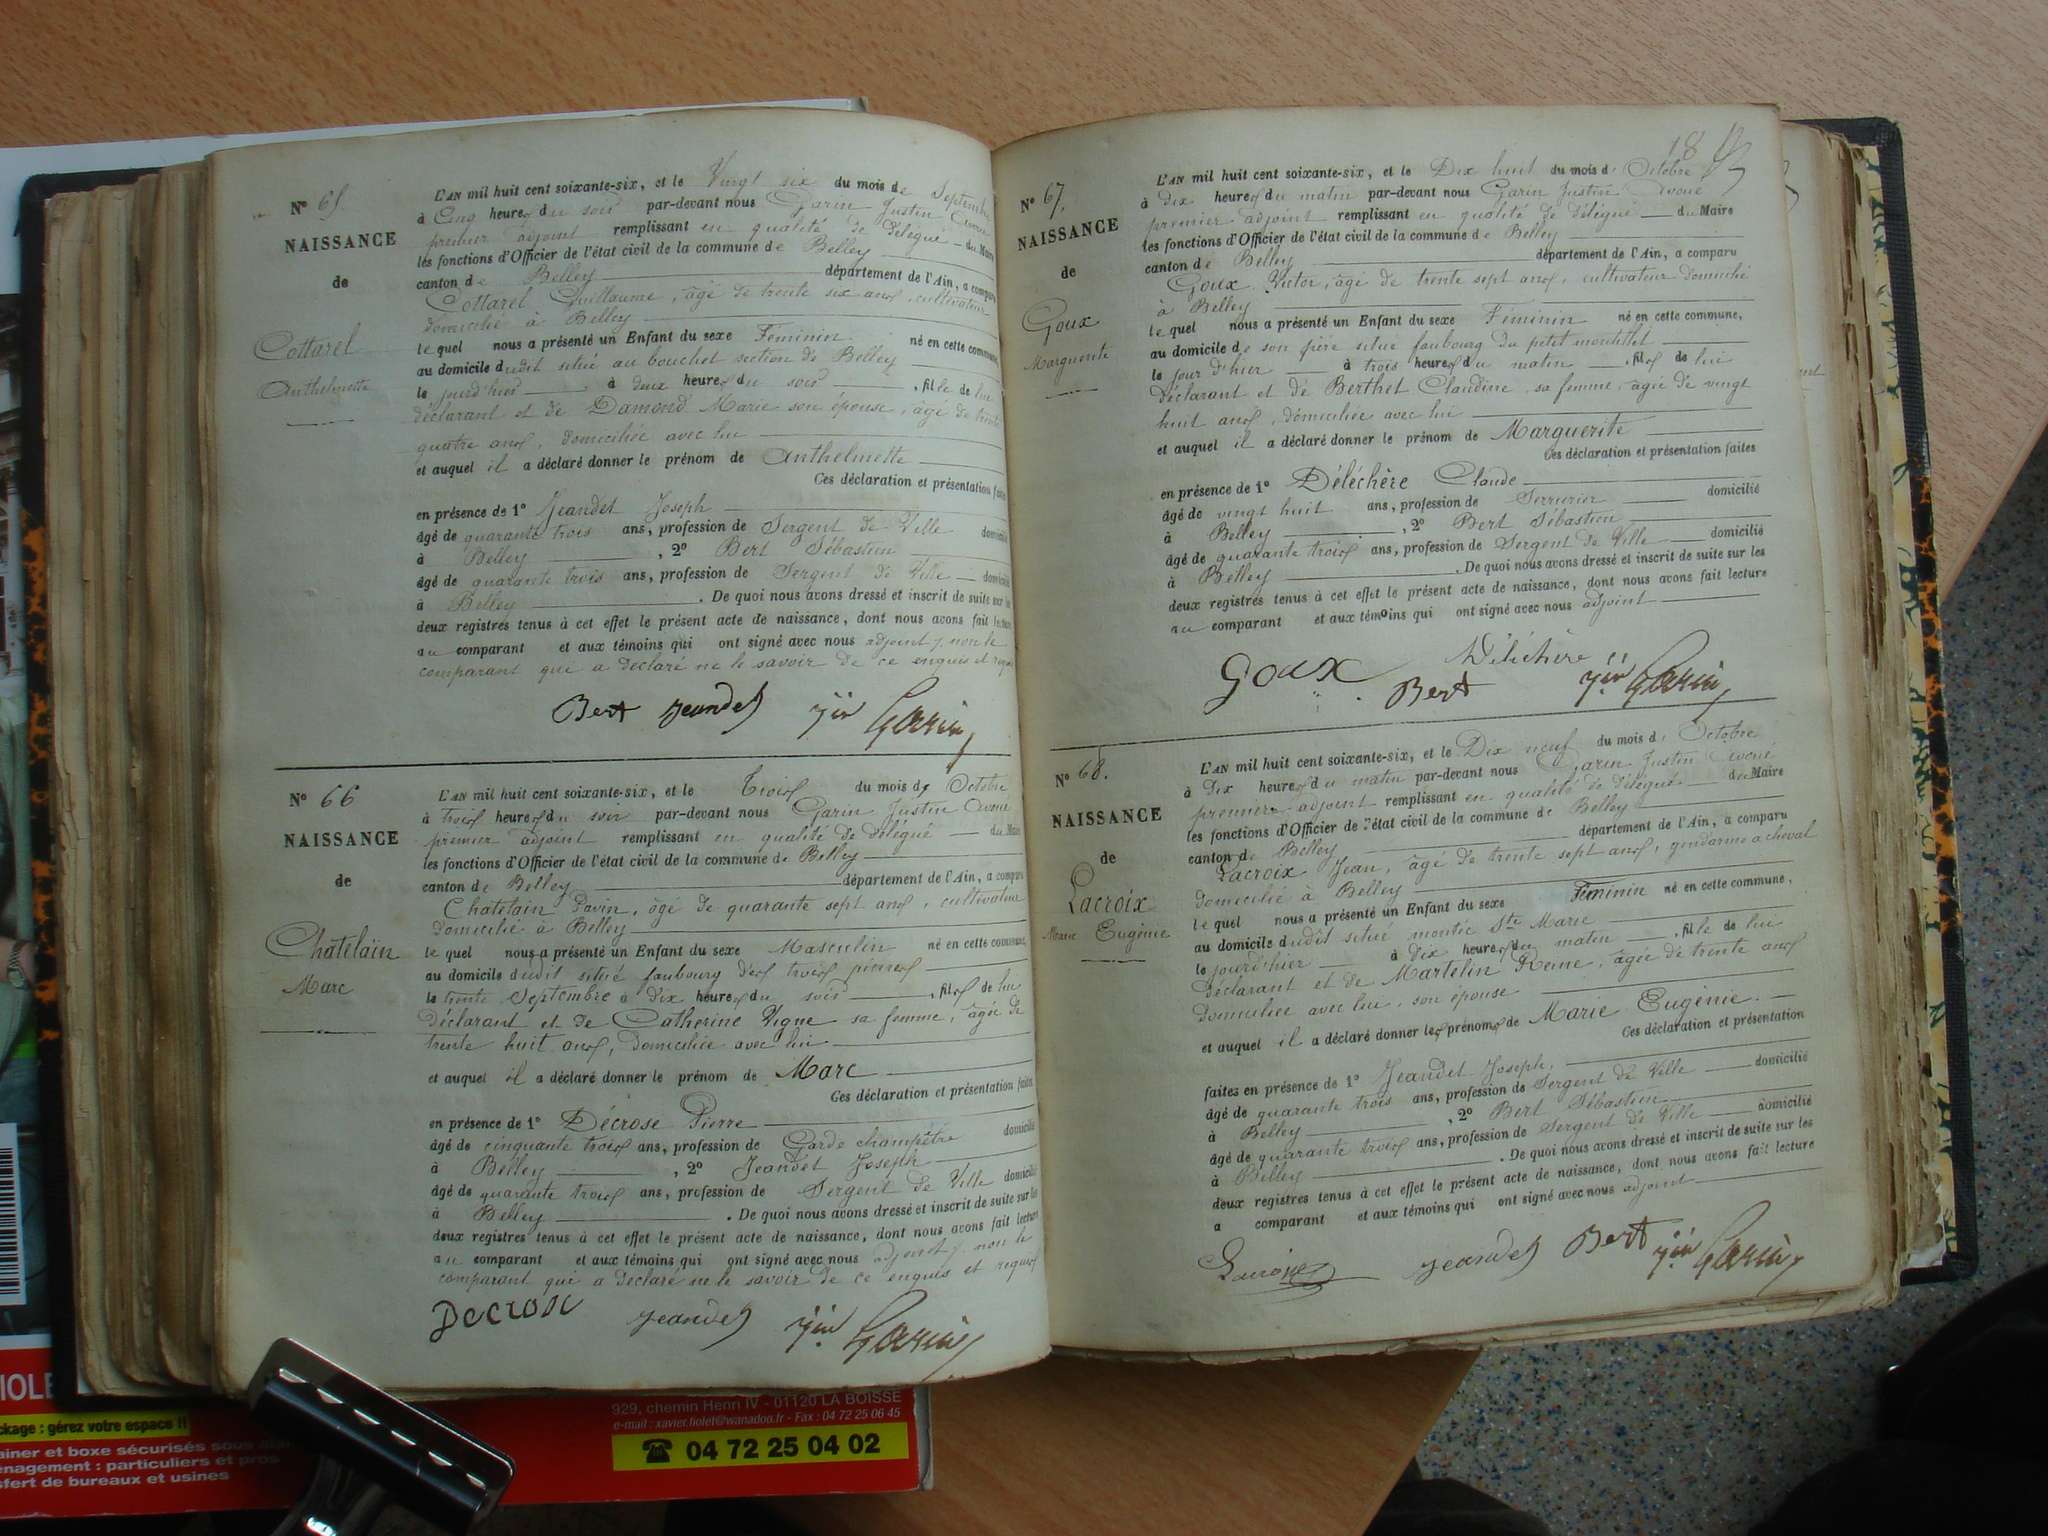 N° 65.
NAISSANCE
de
Cottarel
Anthelmette
L'AN mil huit cent soixante-six, et le Vingt six du mois de Septembre
à Cinq heures du soir par-devant nous Garin Justin Avoué
premier adjoint remplissant en qualité de délégué du Maire
les fonctions d'Officier de l'état civil de la commune de Belley
canton de Belley département de l'Ain, a comparu
Cottarel Guillaume, âgé de trente six ans, cultivateur
domicilié à Belley
le quel nous a présenté un Enfant du sexe Féminin né en cette commune,
au domicile dudit situé au bouchet section de Belley
le jourd'hier à deux heures du soir, fille de lui
déclarant et de Damond Marie son épouse, âgé de trente
quatre ans, domiciliée avec lui
et auquel il a déclaré donner le prénom de Anthelmette
Ces déclaration et présentation faites
en présence de 1° Jeandet Joseph
âgé de quarante trois ans, profession de Sergent de Ville domicilié
à Belley, 2° Bert Sébastien
âgé de quarante trois ans, profession de Sergent de Ville domicilié
à Belley. De quoi nous avons dressé et inscrit de suite sur les
deux registres tenus à cet effet le présent acte de naissance, dont nous avons fait lecture
au comparant et aux témoins qui ont signé avec nous adjoint, non le
comparant que a déclaré ne le savoir de ce enquis et requis
Bert Jeandet Jin Garin
N° 66
NAISSANCE
de
Chatelain
Marc
L'AN mil huit cent soixante-six, et le Trois du mois de Octobre
à trois heures du soir par-devant nous Garin Justin Avoué
premier adjoint remplissant en qualité de délégué du Maire
les fonctions d'Officier de l'état civil de la commune de Belley
canton de Belley département de l'Ain, a comparu
Chatelain Pavin, âgé de quarante sept ans, cultivateur
domicilié à Belley
le quel nous a présenté un Enfant du sexe Masculin né en cette commune,
au domicile dudit situé faubourg des trois pierres
le trente Septembre à dix heures du soir, fils de lui
déclarant et de Catherine Vigne sa femme, âgée de
trente huit ans, domiciliée avec lui
et auquel il a déclaré donner le prénom de Marc
Ces déclaration et présentation faites
en présence de 1° Décrose Pierre
âgé de cinquante trois ans, profession de Garde champêtre domicilié
à Belley, 2° Jeandet Joseph
âgé de quarante trois ans, profession de Sergent de Ville domicilié
à Belley. De quoi nous avons dressé et inscrit de suite sur les
deux registres tenus à cet effet le présent acte de naissance, dont nous avons fait lecture
au comparant et aux témoins qui ont signé avec nous adjoint, non le
comparant qui a déclaré ne le savoir de ce enquis et requis
Decrose Jeandet Jin Garin
18
N° 67.
NAISSANCE
de
Goux
Marguerite
L'AN mil huit cent soixante-six, et le Dix huit du mois d' Octobre
à dix heures du matin par-devant nous Garin Justin Avoué
premier adjoint remplissant en qualité de délégué du Maire
les fonctions d'Officier de l'état civil de la commune de Belley
canton de Belley département de l'Ain, a comparu
Goux Victor, âgé de trente sept ans, cultivateur domicilié
à Belley
le quel nous a présenté un Enfant du sexe Féminin né en cette commune,
au domicile de son père situé faubourg du petit montillet
le jour d'hier à trois heures du matin, fils de lui
déclarant et de Berthet Claudine, sa femme, âgée de vingt
huit ans, domiciliée avec lui
et auquel il a déclaré donner le prénom de Marguerite
Ces déclaration et présentation faites
en présence de 1° Déléchère Claude
âgé de vingt huit ans, profession de Serrurier domicilié
à Belley, 2° Bert Sébastien
âgé de quarante trois ans, profession de Sergent de Ville domicilié
à Belley. De quoi nous avons dressé et inscrit de suite sur les
deux registres tenus à cet effet le présent acte de naissance, dont nous avons fait lecture
au comparant et aux témoins qui ont signé avec nous adjoint
Goux Déléchère
Bert Jin Garin
N° 68.
NAISSANCE
de
Lacroix
Marie Eugénie
L'AN mil huit cent soixante-six, et le Dix neuf du mois d' Octobre
à Dix heures du matin par-devant nous Garin Justin Avoué
premier adjoint remplissant en qualité de délégué du Maire
les fonctions d'Officier de l'état civil de la commune de Belley
canton de Belley département de l'Ain, a comparu
Lacroix Jean, âgé de trente sept ans, gendarme à cheval
domicilié à Belley
le quel nous a présenté un Enfant du sexe Féminin né en cette commune,
au domicile dudit situé montée Ste Marie
le jourd'hier à dix heures du matin, fille de lui
déclarant et de Martelin Reine, âgée de trente ans
domiciliée avec lui, son épouse
et auquel il a déclaré donner les prénoms de Marie Eugénie.
Ces déclaration et présentation
faites en présence de 1° Jeandet Joseph,
âgé de quarante trois ans, profession de Sergent de Ville domicilié
à Belley, 2° Bert Sébastien
âgé de quarante trois ans, profession de Sergent de Ville domicilié
à Belley. De quoi nous avons dressé et inscrit de suite sur les
deux registres tenus à cet effet le présent acte de naissance, dont nous avons fait lecture
a comparant et aux témoins qui ont signé avec nous adjoint
Lacroix Jeandet Bert Jin Garin
IOLE
929, chemin Henri IV - 01120 LA BOISSE
e-mail : xavier.fiolet@wanadoo.fr - Fax : 04 72 25 06 45
☎ 04 72 25 04 02
ckage : gérez votre espace !!
ainer et boxe sécurisés sous
énagement : particuliers et pros
sfert de bureaux et usines